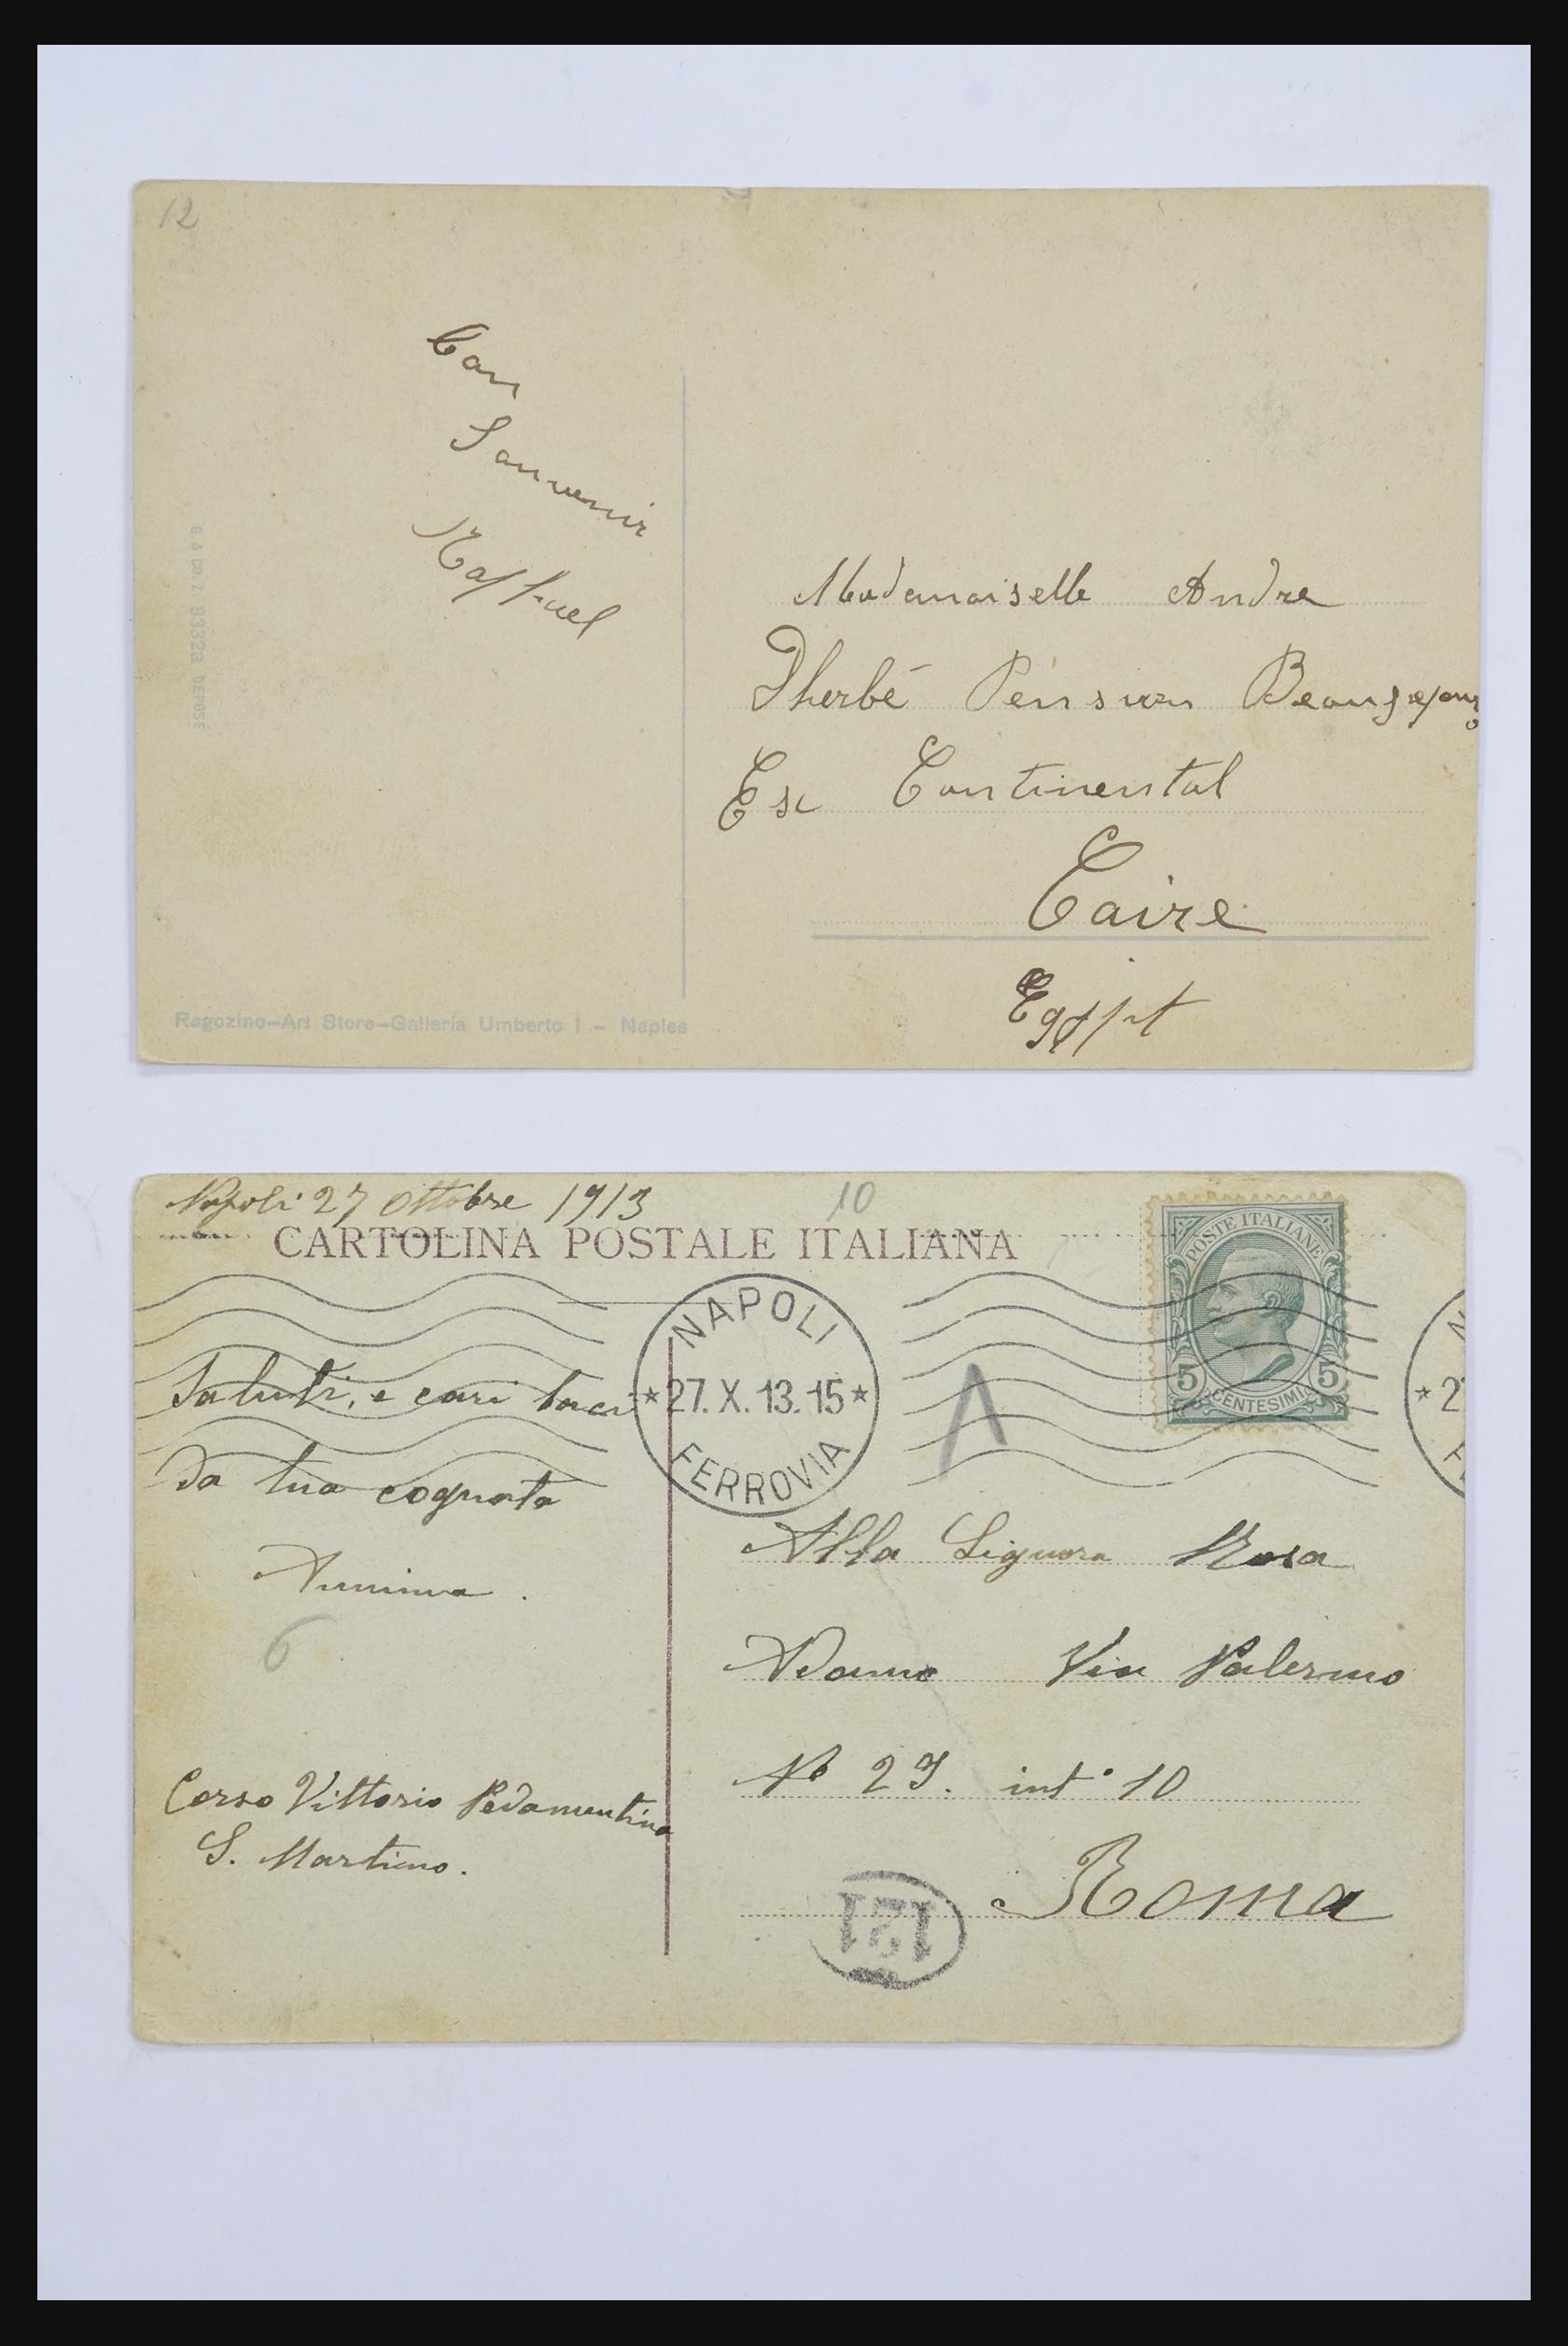 12
bon
Souvenir
Raffael
Mademoiselle Andre
Dherbé Pension Beausejour
Ex Continental
Caire
Egypt
83328 DÉPOSÉ
Ragozino–Art Store–Galleria Umberto I – Naples
Napoli 27 Ottobre 1913
10
CARTOLINA POSTALE ITALIANA
POSTE ITALIANE
5 5
CENTESIMI
NAPOLI
★27.X.13.15★
FERROVIA
Saluti, e cari baci
Da tua cognata
6
Alla Signora Rosa
Via Palermo
No 29. int° 10
Roma
Corso Vittorio Pedamentina
S. Martino.
121